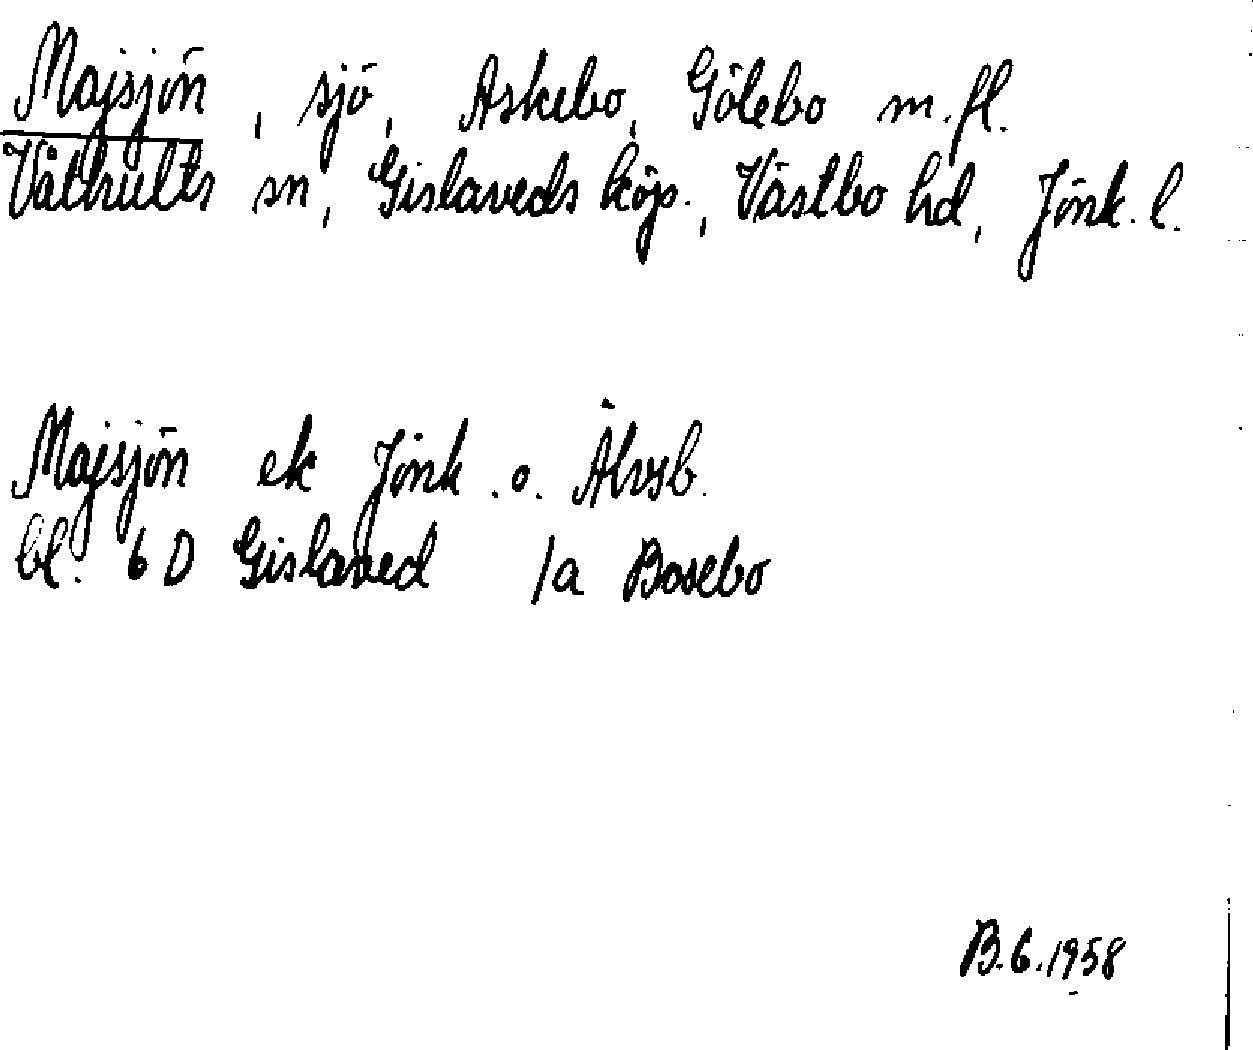 Majsjön, sjö, Askebo, Gölebo m.fl.
Våthults sn, Gislaveds köp., Västbo hd, Jönk. l.
Majsjön ek Jönk. o. Älvsb.
bl. 6 D Gislaved 1a Bosebo
B.G. 1958